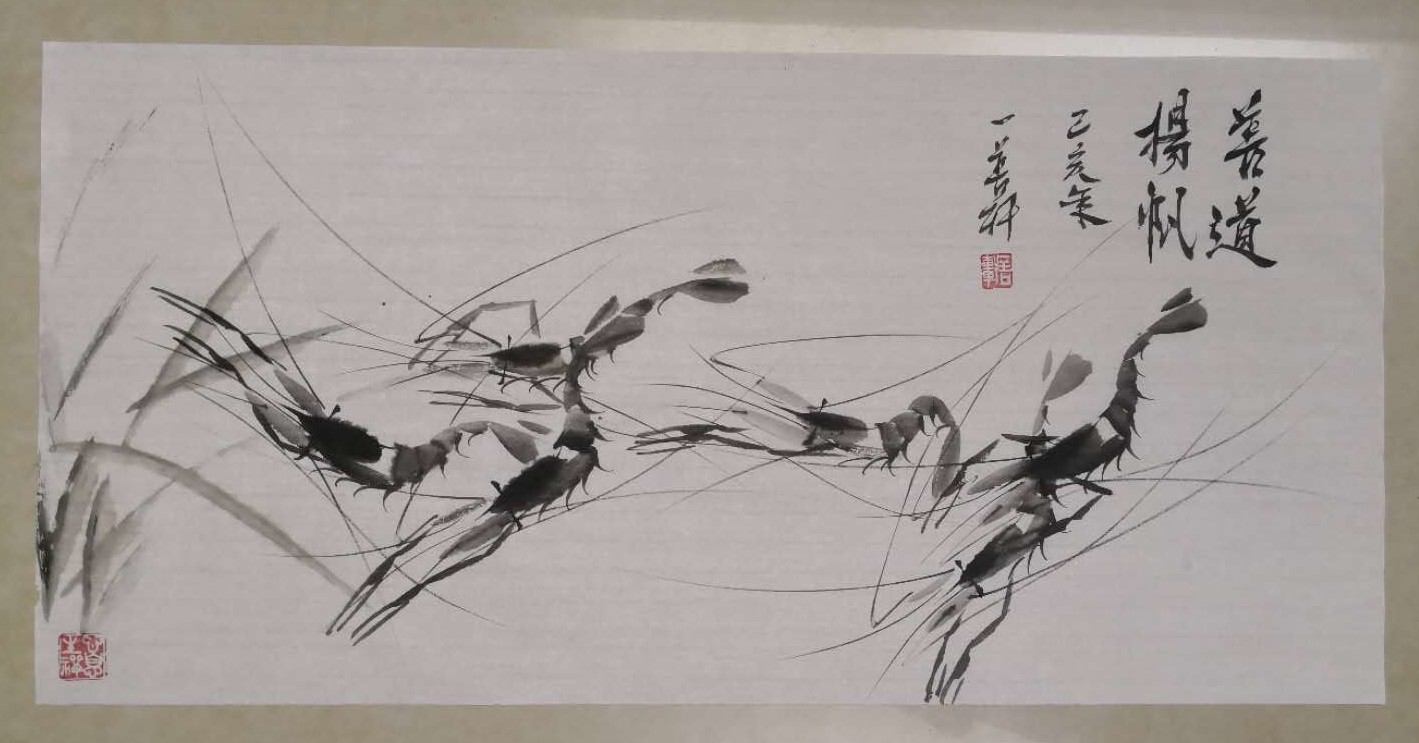 善道
揚帆
己亥年
一善軒